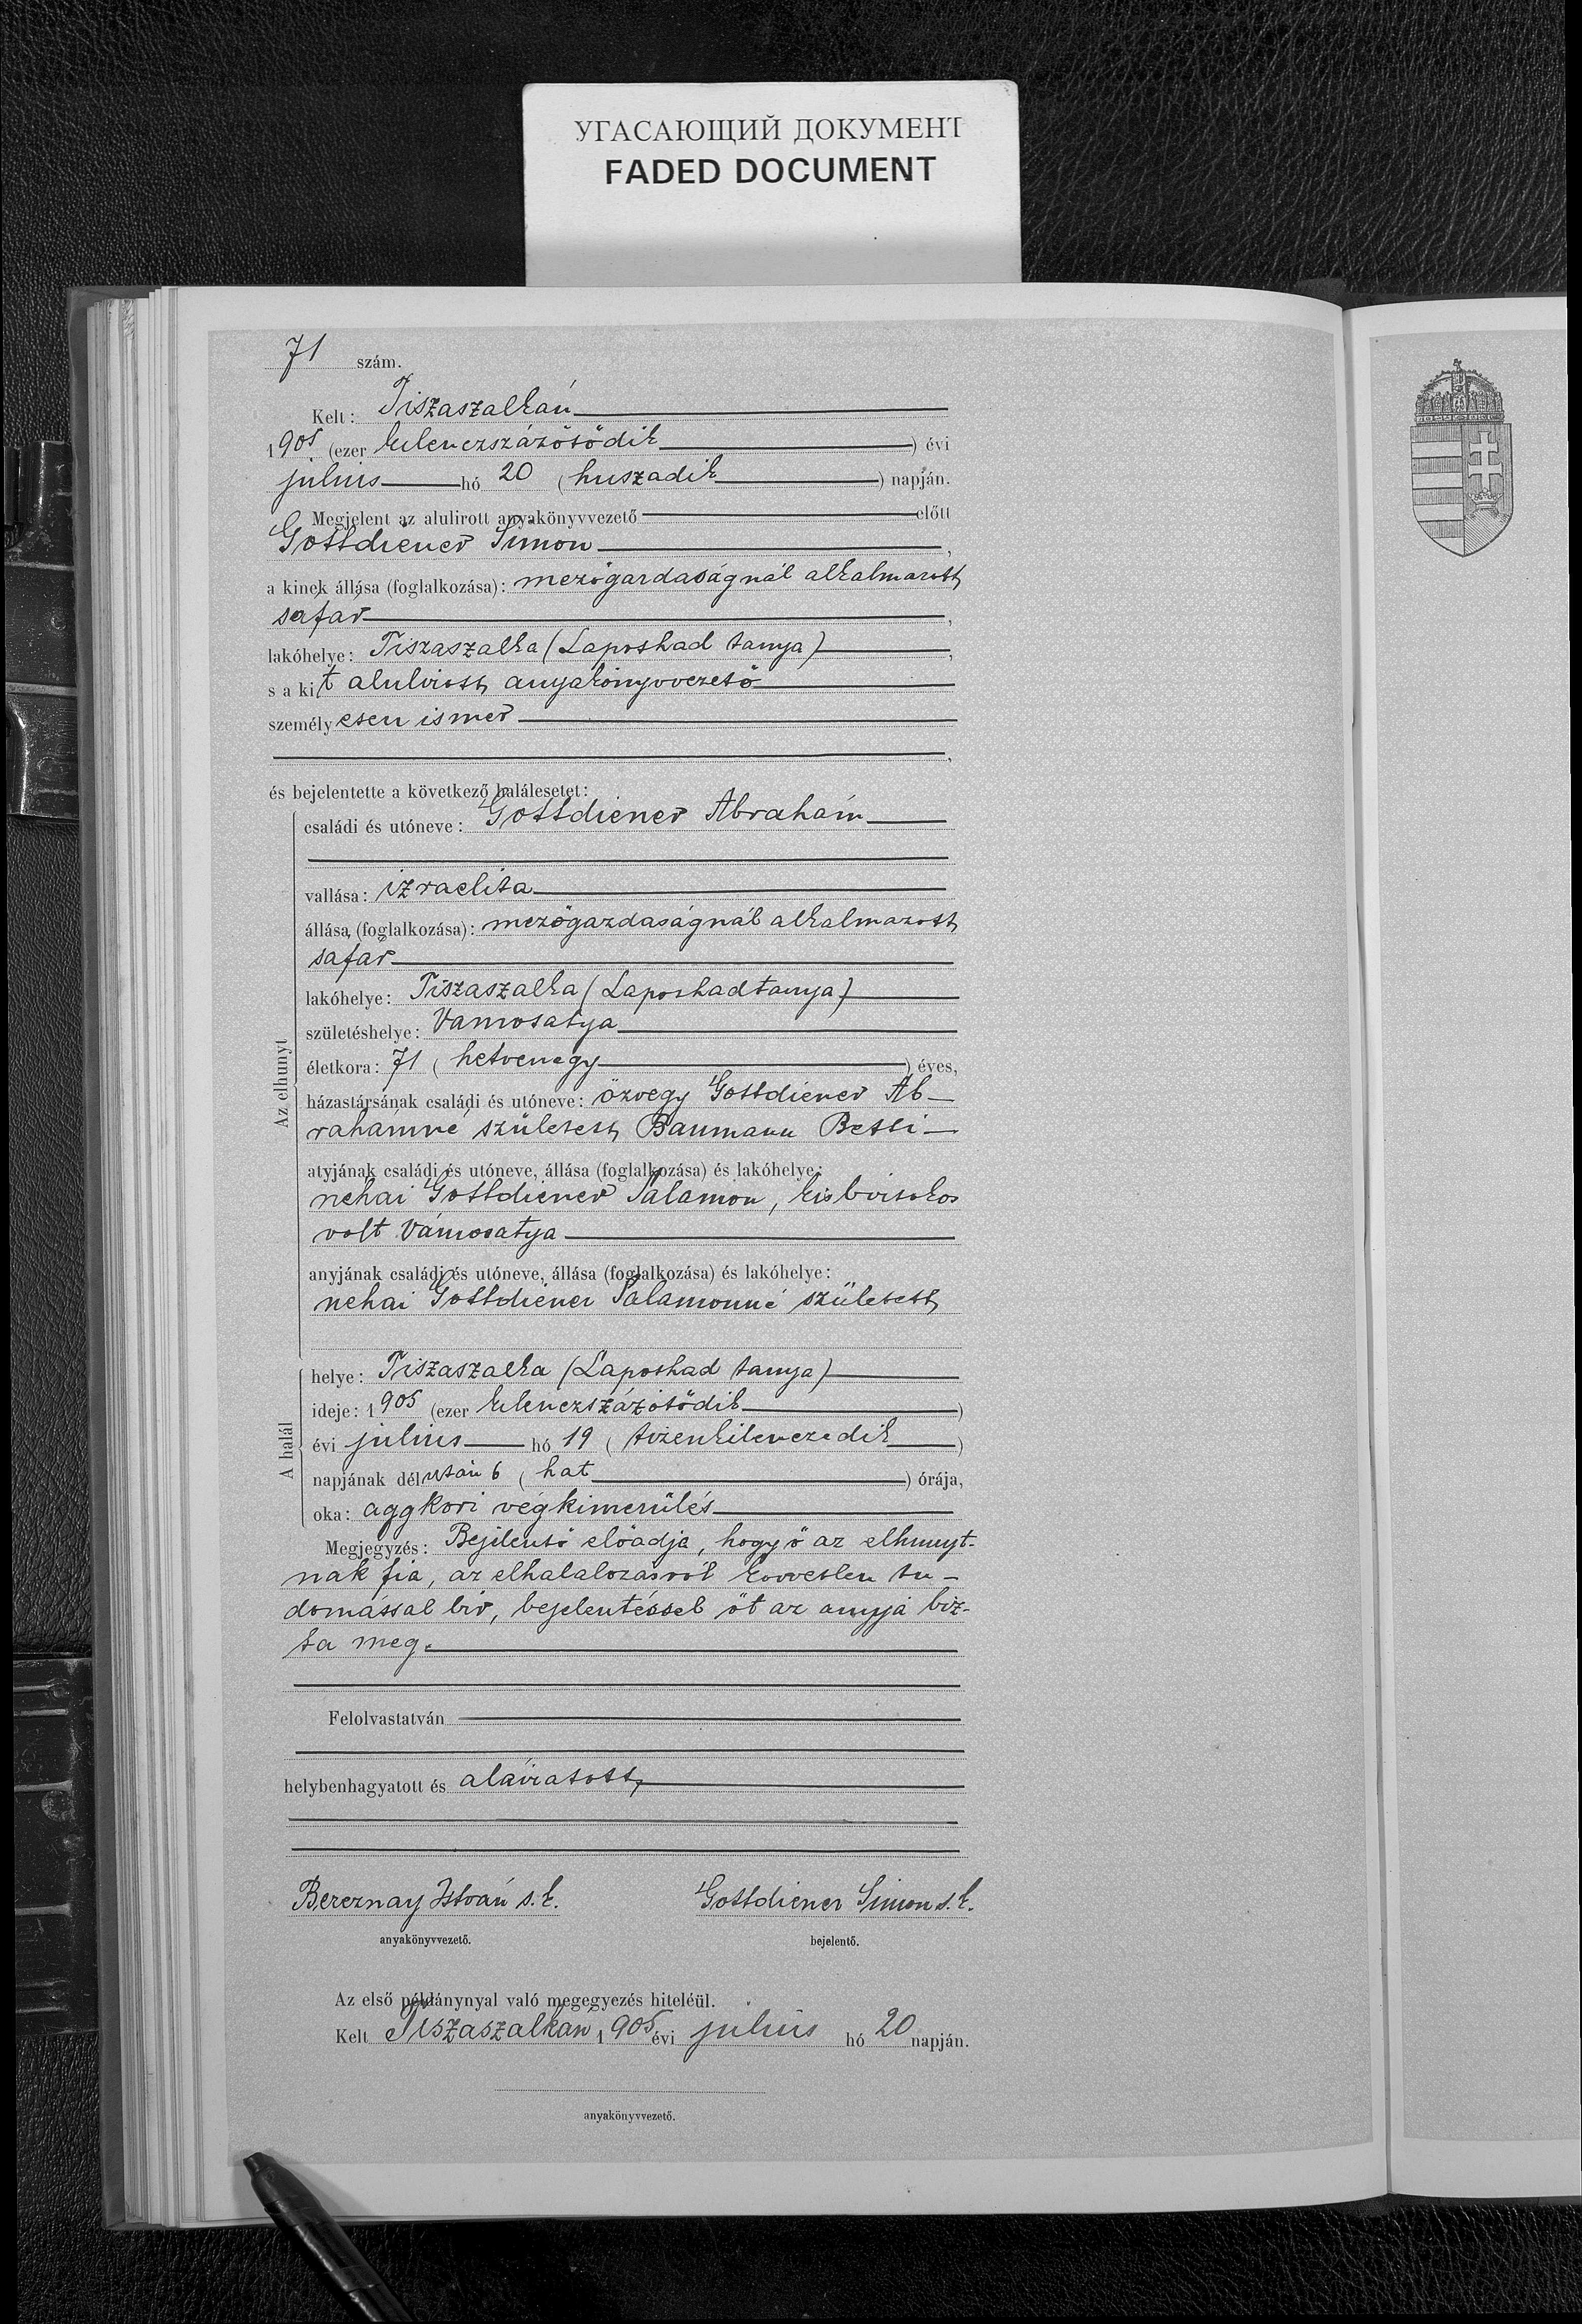 УГАСАЮЩИЙ ДОКУМЕНТ
FADED DOCUMENT
71 szám.
Kelt: Tiszaszalkán
1905 (ezer kilenczszázötödik) évi
julius hó 20 (huszadik) napján.
Megjelent az alulirott anyakönyvvezető előtt
Gottdiener Simon,
a kinek állása (foglalkozása): mezőgardaságnál alkalmazott
safar,
lakóhelye: Tiszaszalka (Laposhad tanya),
s a kit alulirott anyakönyvvezető
személyesen ismer
,
és bejelentette a következő halálesetet:
Az elhunyt
családi és utóneve: Gottdiener Abrahám
vallása: izraelita
állása (foglalkozása): mezőgazdaságnál alkalmazott
safar
lakóhelye: Tiszaszalka (Laposhadtanya)
születéshelye: Vamosatya
életkora: 71 (hetvenegy) éves,
házastársának családi és utóneve: özvegy Gottdiener Ab-
rahámné született Baumann Betti
atyjának családi és utóneve, állása (foglalkozása) és lakóhelye:
nehai Gottdiener Salamon, kisbirtokos
volt Vámosatya
anyjának családi és utóneve, állása (foglalkozása) és lakóhelye:
nehai Gottdiener Salamonné született
A halál
helye: Tiszaszalka (Laposhad tanya)
ideje: 1905 (ezer kilenczszázötödik)
évi julius hó 19 (tizenkilenczedik)
napjának délután 6 (hat) órája,
oka: aggkori végkimerülés
Megjegyzés: Bejelentő előadja, hogy ő az elhunyt-
nak fia, az elhalalozásról közvetlen tu-
domással bir, bejelentéssel őt az anyja biz-
ta meg.
Felolvastatván
helybenhagyatott és aláiratott
Bereznay István s. k. Gottdiener Simon s. k.
anyakönyvvezető. bejelentő.
Az első példánynyal való megegyezés hiteléül.
Kelt Tiszaszalkán 1905 évi julius hó 20 napján.
anyakönyvvezető.